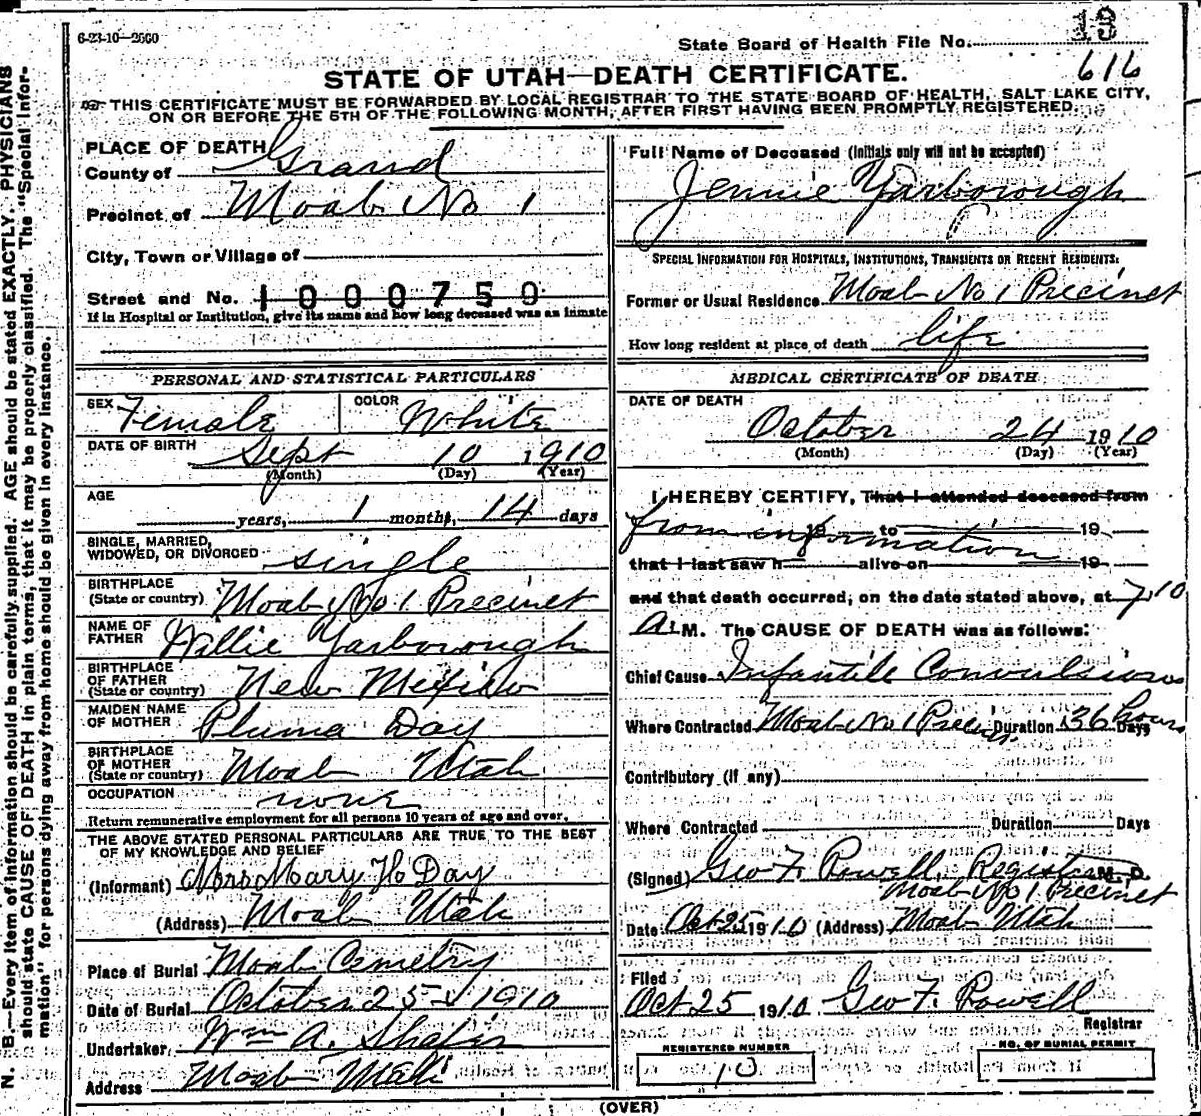 6-23-10—2500
State Board of Health File No. 13
616
STATE OF UTAH—DEATH CERTIFICATE.
THIS CERTIFICATE MUST BE FORWARDED BY LOCAL REGISTRAR TO THE STATE BOARD OF HEALTH, SALT LAKE CITY,
ON OR BEFORE THE 5TH OF THE FOLLOWING MONTH, AFTER FIRST HAVING BEEN PROMPTLY REGISTERED.
N. B.—Every item of information should be carefully supplied. AGE should be stated EXACTLY. PHYSICIANS
should state CAUSE OF DEATH in plain terms, that it may be properly classified. The "Special Infor-
mation" for persons dying away from home should be given in every instance.
PLACE OF DEATH
County of Grand
Precinct of Moab No 1
City, Town or Village of
Street and No. 1000750
If in Hospital or Institution, give its name and how long deceased was an inmate
PERSONAL AND STATISTICAL PARTICULARS
SEX Female COLOR White
DATE OF BIRTH Sept 10 1910
(Month) (Day) (Year)
AGE
years, 1 months, 14 days
SINGLE, MARRIED,
WIDOWED, OR DIVORCED single
BIRTHPLACE
(State or country) Moab No 1 Precinct
NAME OF
FATHER Willie Yarborough
BIRTHPLACE
OF FATHER
(State or country) New Mexico
MAIDEN NAME
OF MOTHER Pluma Day
BIRTHPLACE
OF MOTHER
(State or country) Moab Utah
OCCUPATION none
Return remunerative employment for all persons 10 years of age and over.
THE ABOVE STATED PERSONAL PARTICULARS ARE TRUE TO THE BEST
OF MY KNOWLEDGE AND BELIEF
(Informant) Mrs Mary H Day
(Address) Moab Utah
Place of Burial Moab Cemetry
Date of Burial October 25 1910
Undertaker Wm A. Shafer
Address Moab Utah
Full Name of Deceased (Initials only will not be accepted)
Jennie Yarborough
SPECIAL INFORMATION FOR HOSPITALS, INSTITUTIONS, TRANSIENTS OR RECENT RESIDENTS:
Former or Usual Residence Moab No 1 Precinct
How long resident at place of death life
MEDICAL CERTIFICATE OF DEATH
DATE OF DEATH
October 24 1910
(Month) (Day) (Year)
I HEREBY CERTIFY, That I attended deceased from
from information 19 to 19
that I last saw h alive on 19
and that death occurred, on the date stated above, at 7.10
A. M. The CAUSE OF DEATH was as follows:
Chief Cause Infantile Convulsions
Where Contracted Moab No 1 Precinct Duration 36 hours Days
Contributory (if any)
Where Contracted Duration Days
(Signed) Geo F. Powell, Registrar M. D.
Moab No 1 Precinct
Date Oct 25 1910 (Address) Moab Utah
Filed
Oct 25 1910 Geo F. Powell
Registrar
REGISTERED NUMBER
10
NO. OF BURIAL PERMIT
(OVER)